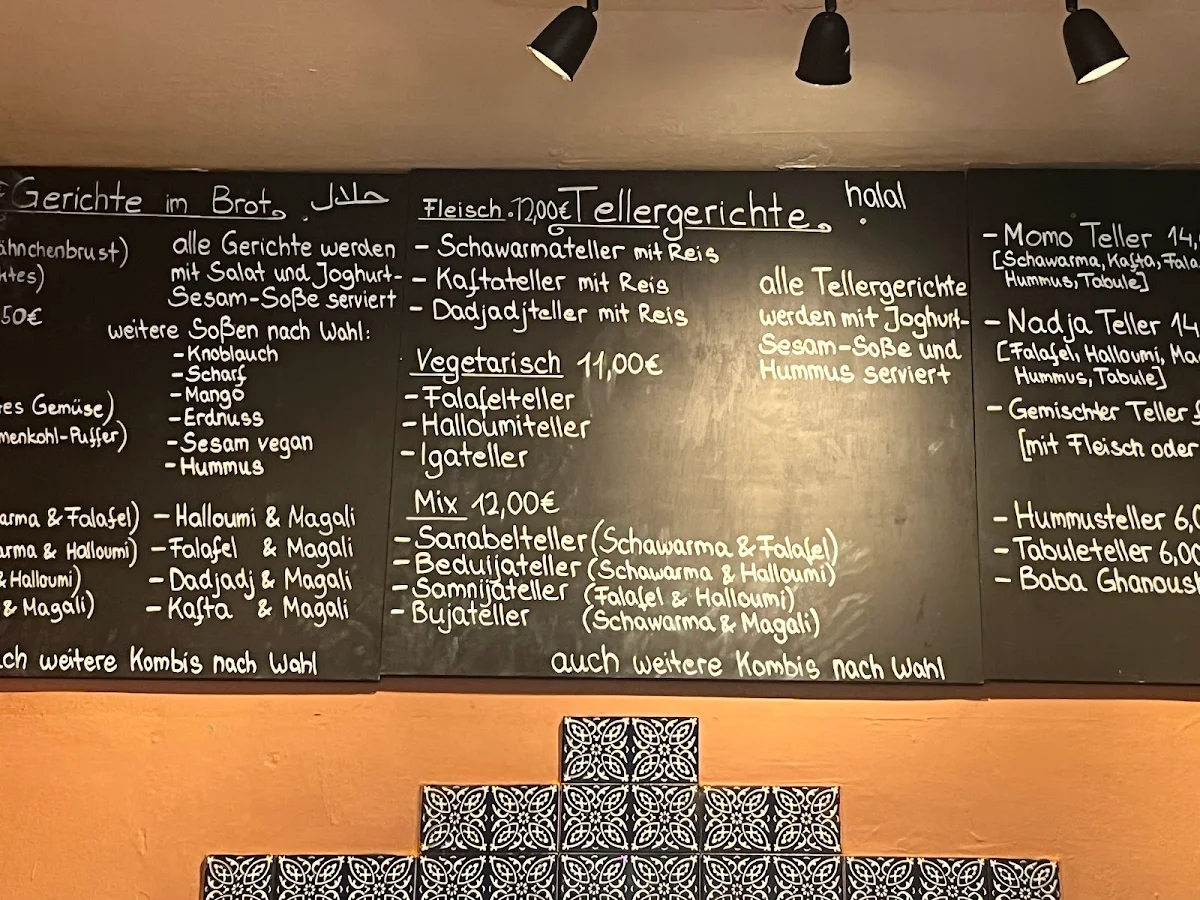 Gerichte im Brot حلال
ähnchenbrust)
50€
alle Gerichte werden
mit Salat und Joghurt-
Sesam-Soße serviert
weitere Soßen nach Wahl:
- Knoblauch
- Scharf
- Mango
- Erdnuss
- Sesam vegan
- Hummus
es Gemüse)
menkohl-Puffer)
arma & Falafel)
arma & Halloumi)
& Halloumi)
& Magali)
- Halloumi & Magali
- Falafel & Magali
- Dadjadj & Magali
- Kafta & Magali
ch weitere Kombis nach Wahl
Fleisch 12,00€ Tellergerichte halal
- Schawarmateller mit Reis
- Kaftateller mit Reis
- Dadjadjteller mit Reis
alle Tellergerichte
werden mit Joghurt-
Sesam-Soße und
Hummus serviert
Vegetarisch 11,00€
- Falafelteller
- Halloumiteller
- Igateller
Mix 12,00€
- Sanabelteller (Schawarma & Falafel)
- Beduijateller (Schawarma & Halloumi)
- Samnijateller (Falafel & Halloumi)
- Bujateller (Schawarma & Magali)
auch weitere Kombis nach Wahl
- Momo Teller 14,
[Schawarma, Kafta, Fala
Hummus, Tabule]
- Nadja Teller 14
[Falafel, Halloumi, Ma
Hummus, Tabule]
- Gemischter Teller
[mit Fleisch oder
- Hummusteller 6,0
- Tabuleteller 6,00
- Baba Ghanoush